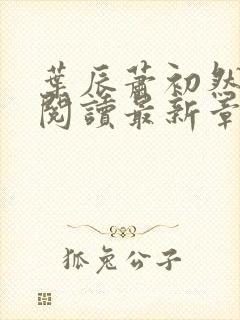 葉辰蕭初然
閱讀最新章
狐兔公子